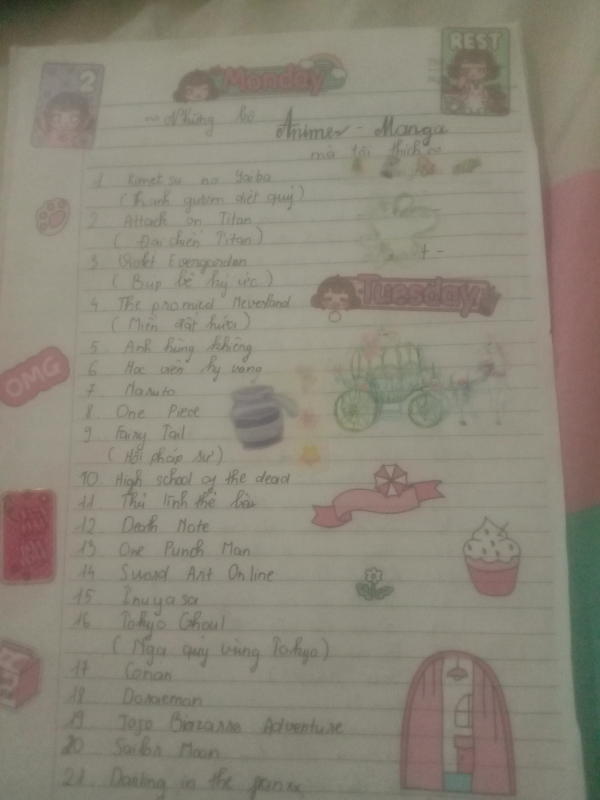 2
Monday
REST
~ Những bộ Anime - Manga
mà tôi thích ~
1 Kimet su no Yaiba
( Thanh gươm diệt quỷ )
2 Attack on Titan
( Đại chiến Titan )
+ -
3 Violet Evergarden
( Búp bê ký ức )
Tuesday
4 The promied Neverland
( Miền đất hứa )
5 Anh hùng khiên
OMG
6 Học viện hy vọng
7 Naruto
8 One Piece
9 Fairy Tail
( Hội pháp sư )
10 High school of the dead
11 Thủ lĩnh thẻ bài
12 Death Note
13 One Punch Man
14 Sword Art Online
15 Inuyasa
16 Tokyo Ghoul
( Ngạ quỷ vùng Tokyo )
17 Conan
18 Doraemon
19 JoJo Bizarre Adventure
20 Sailor Moon
21 Darling in the